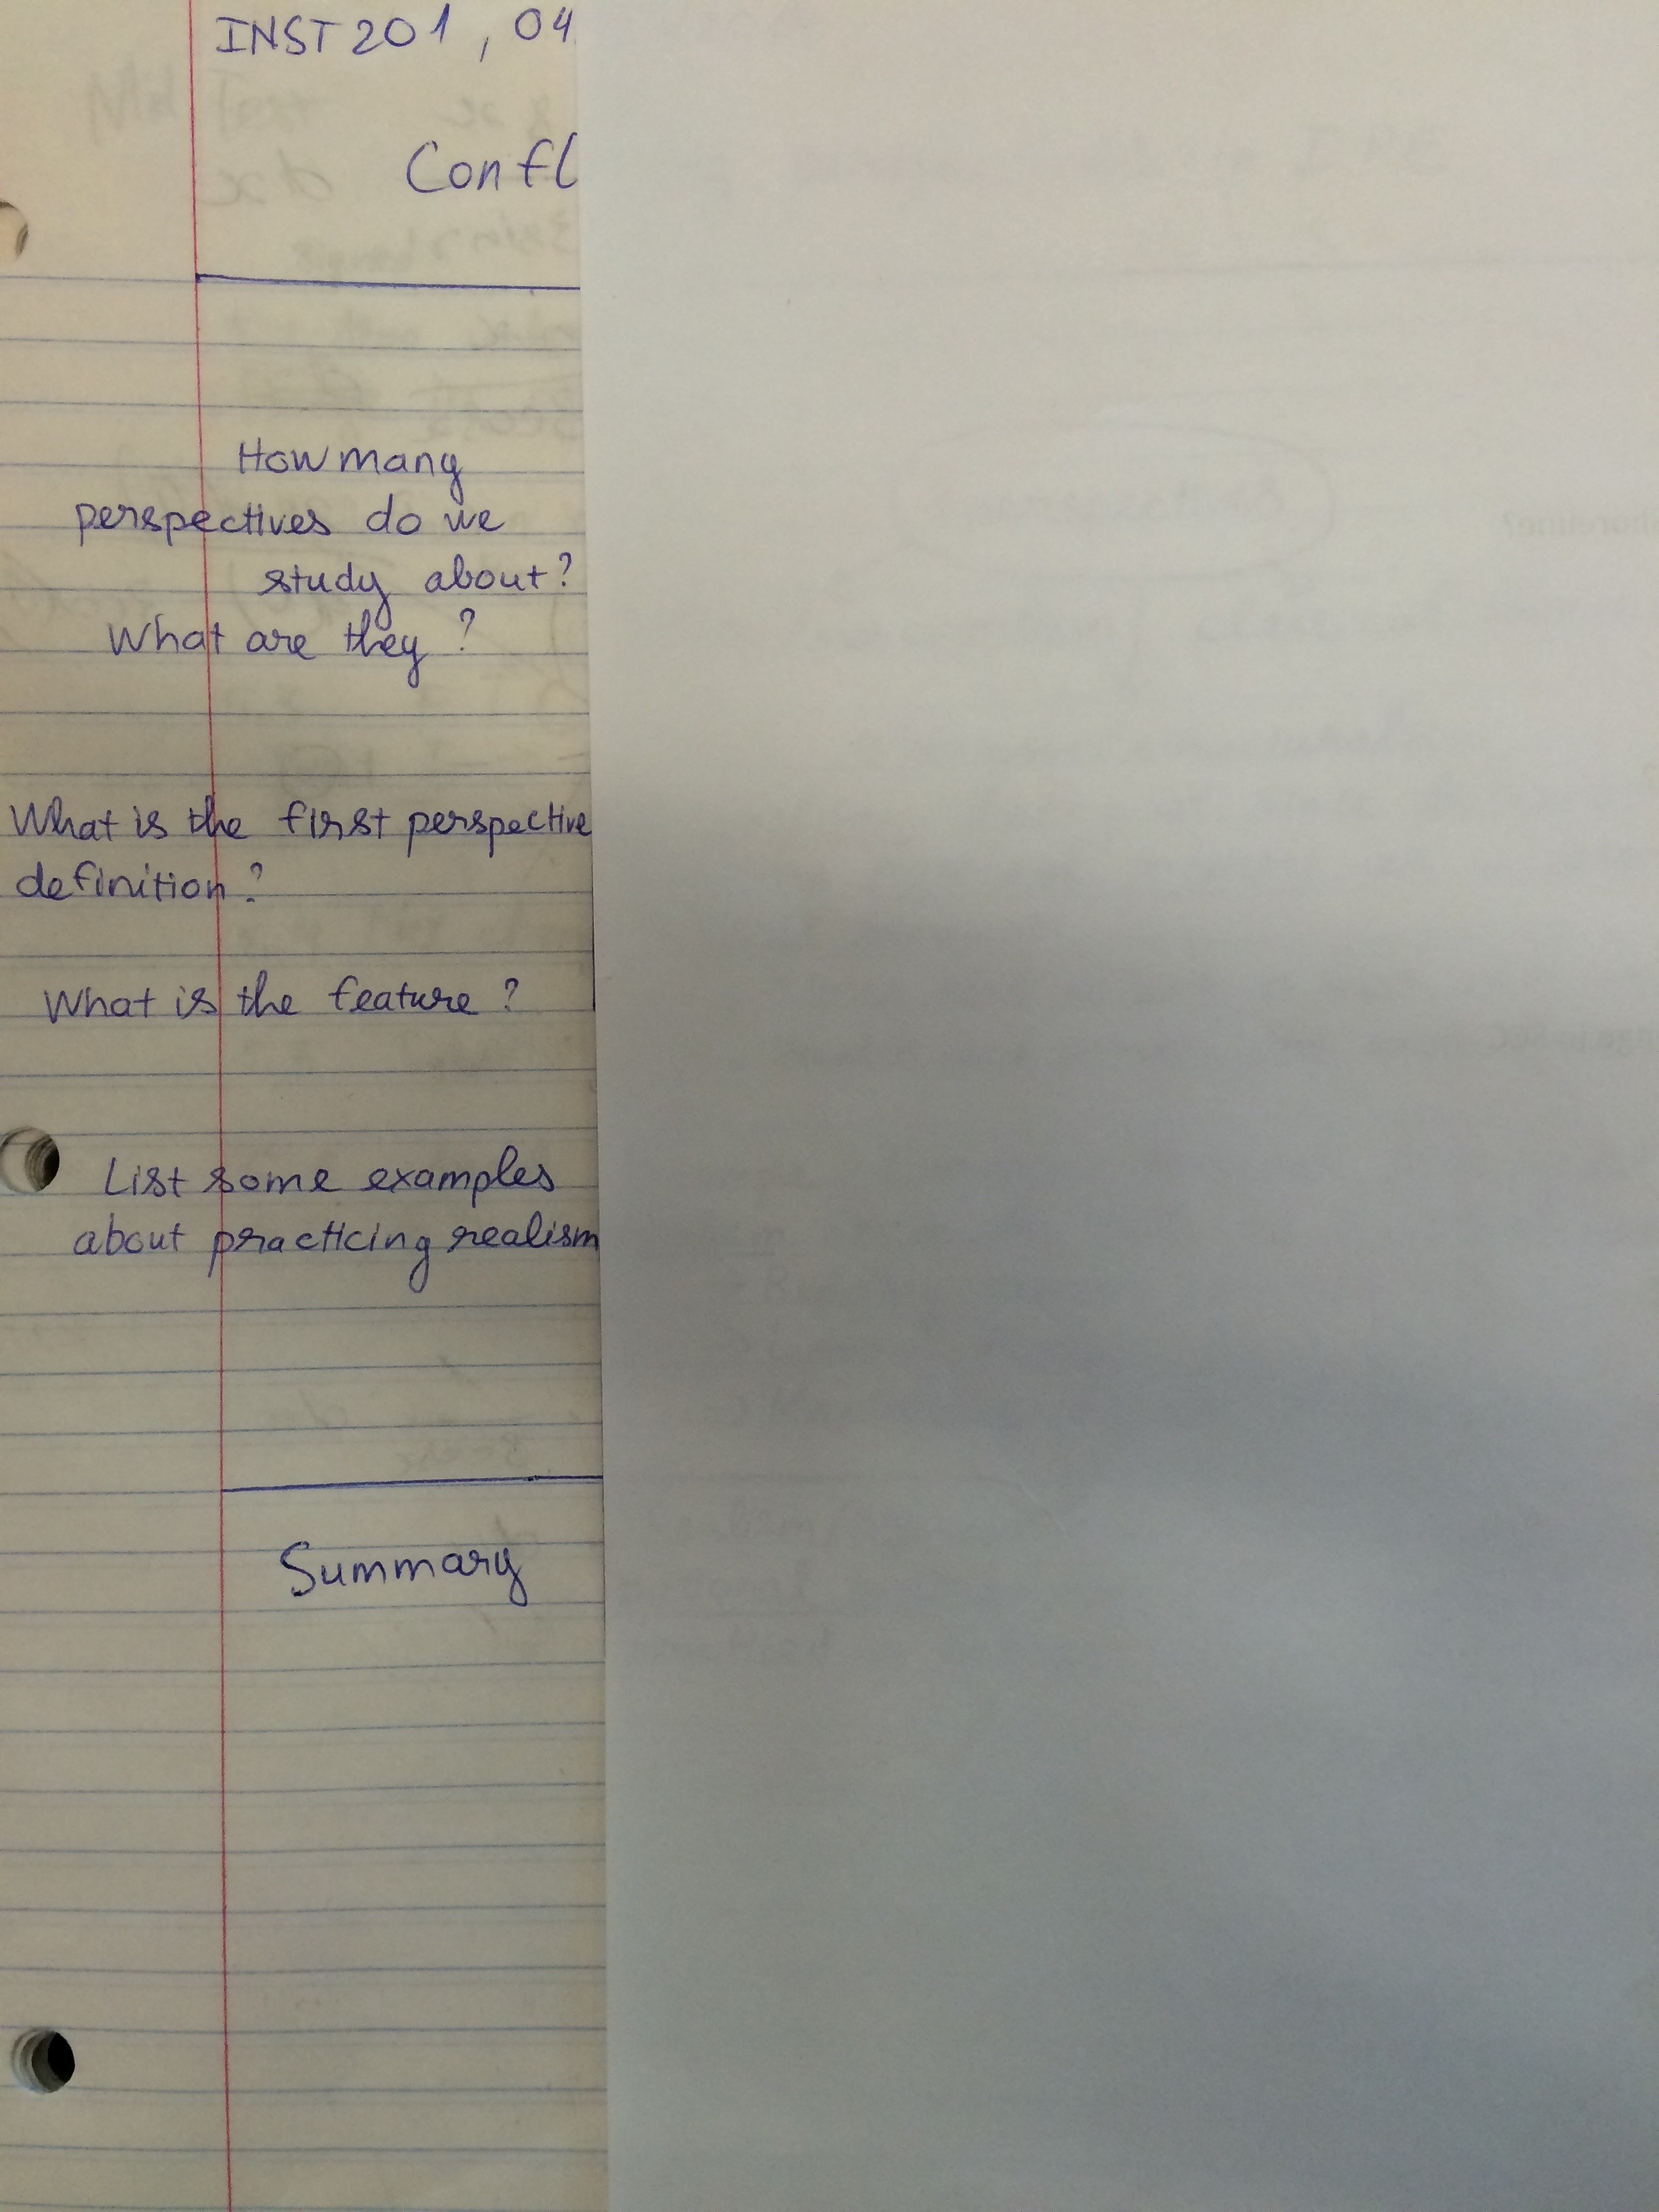 INST 201, 04
Confl
How many
perspectives do we
study about?
What are they?
What is the first perspective
definition?
What is the feature?
List some examples
about practicing realism
Summary